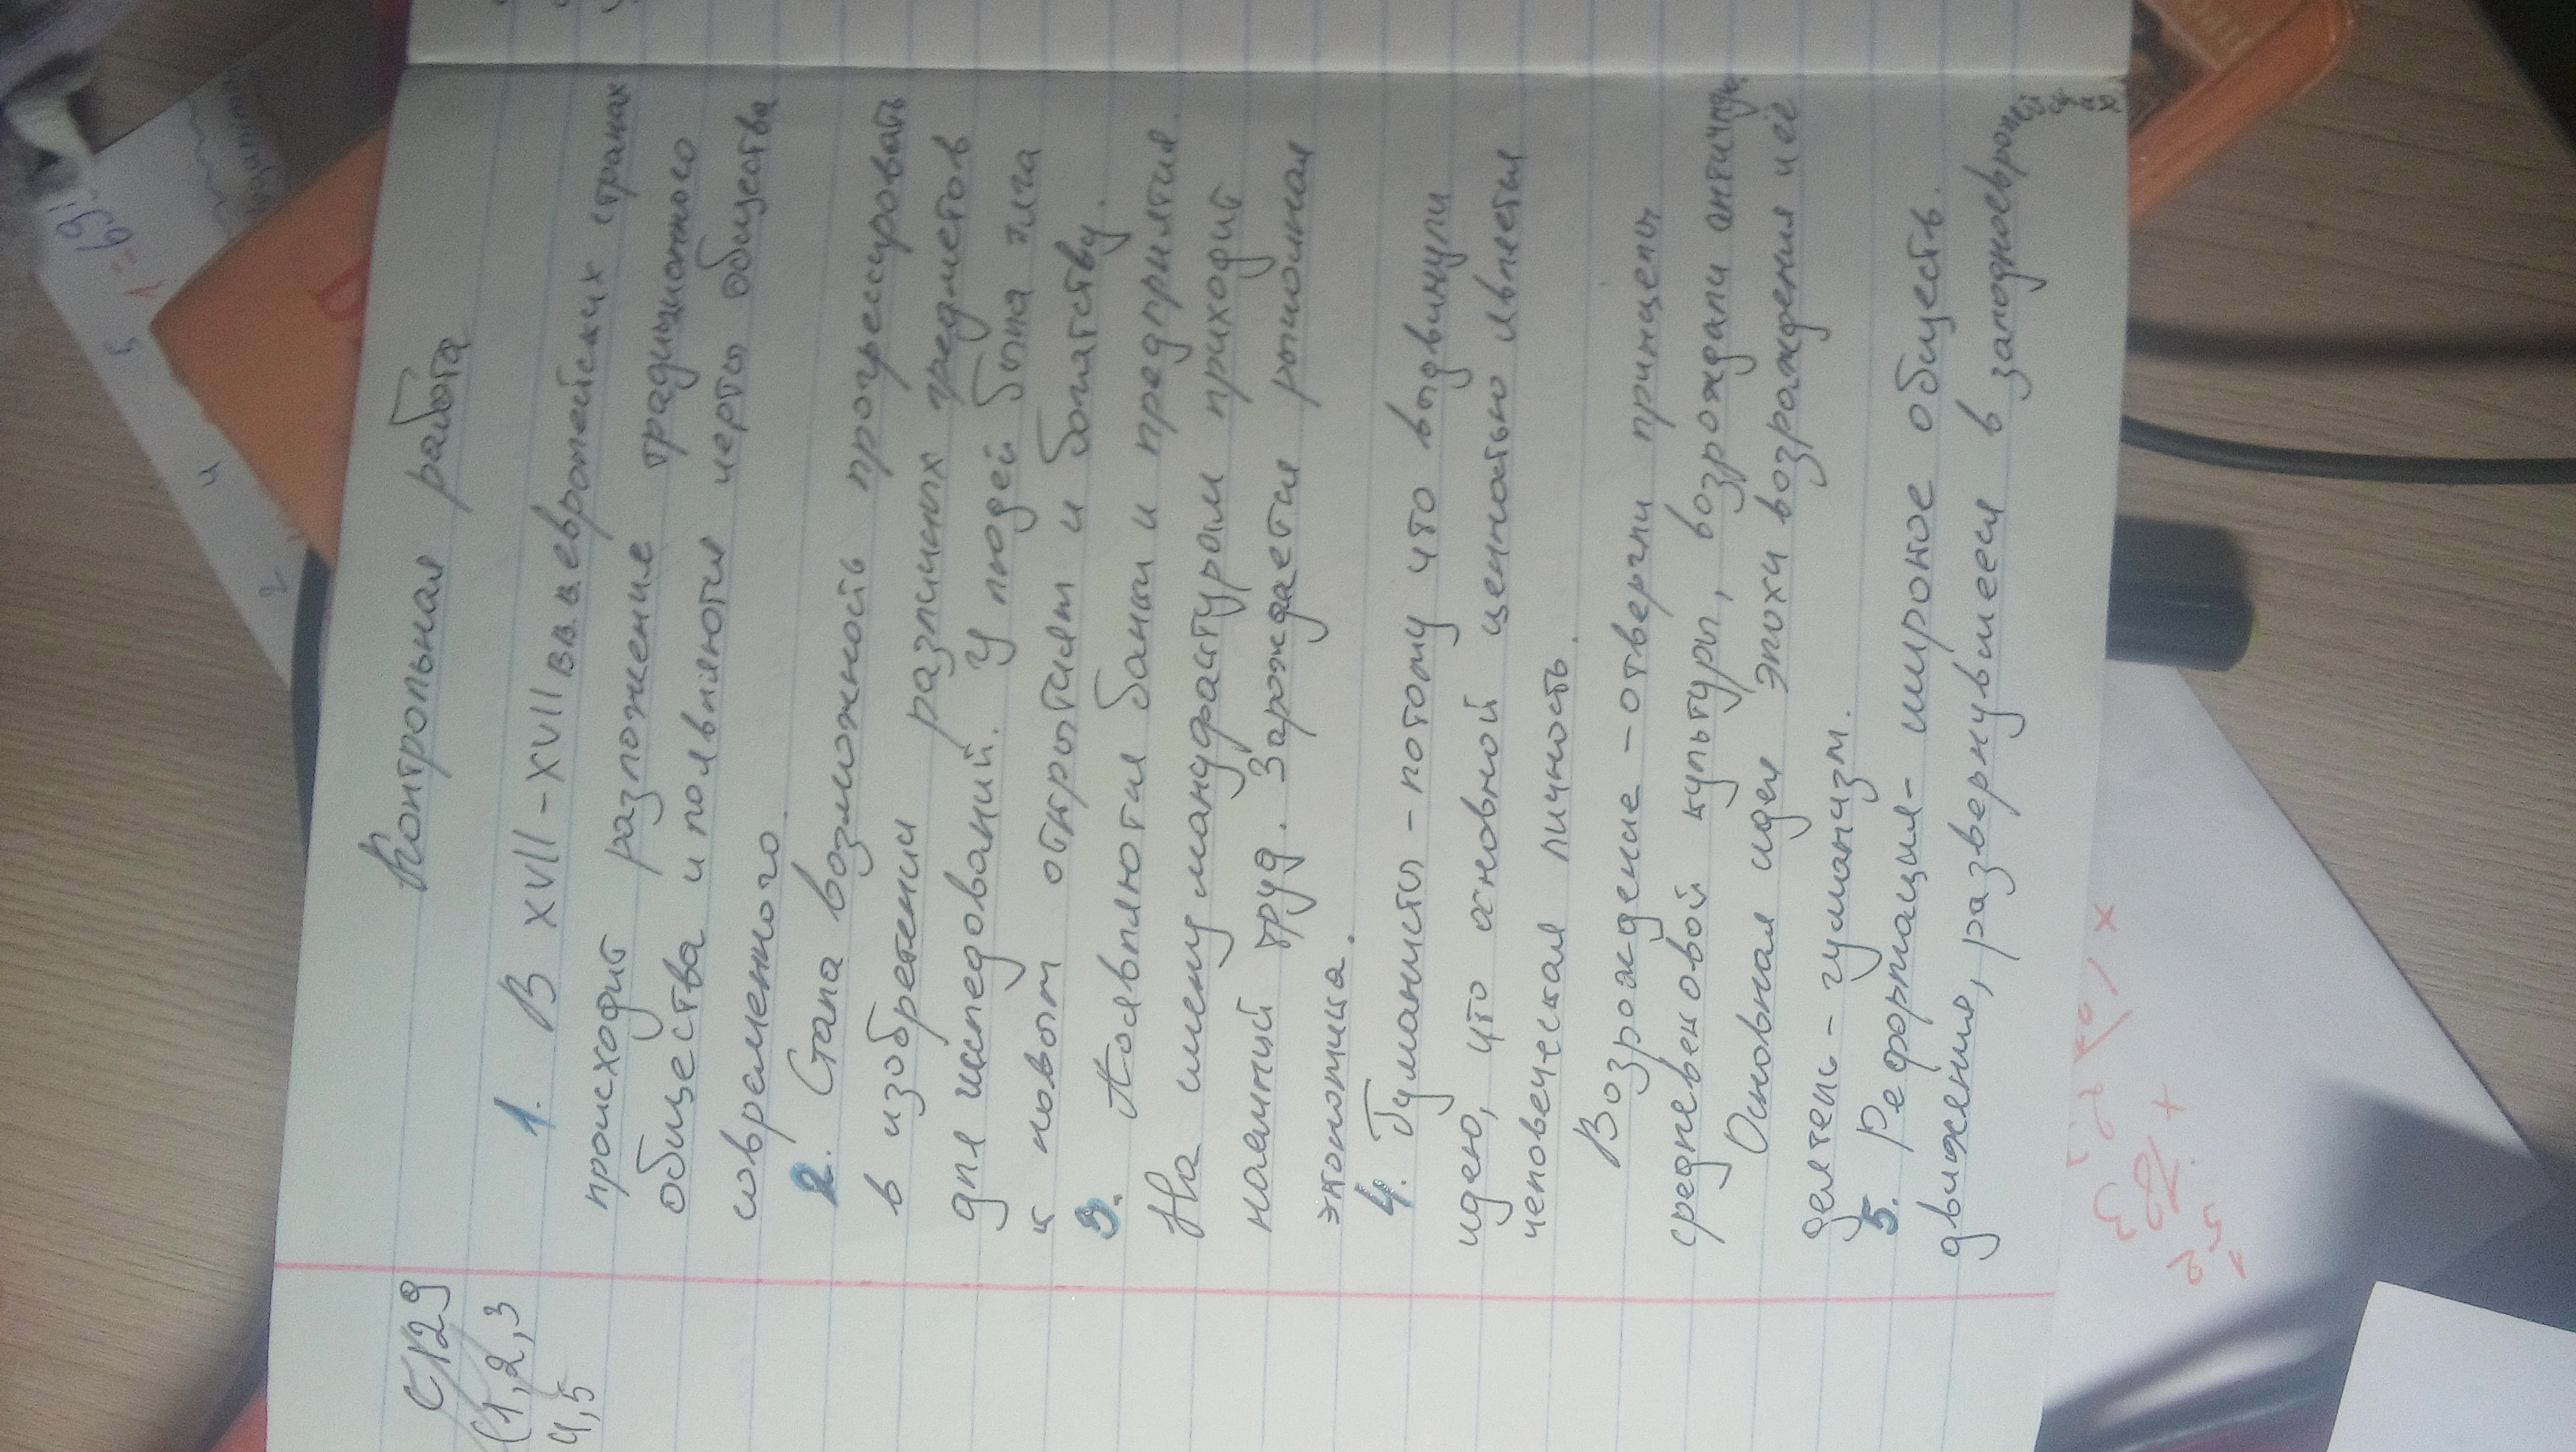 Контрольная работа
С129
(1,2,3
4,5
1. В XVII - XVII вв. в европейских странах
происходит разложение традиционного
общества и появляются черты общества
современного.
2. Стала возможность прогрессировать
в изобретении различных предметов
для исследований. У людей была тяга
к новым открытиям и богатству.
3. Появляются банки и предприятия.
На смену мануфактурам приходит
наемный труд. Зарождается рыночная
экономика.
4. Гуманисты - потому что выдвинули
идею, что основной ценностью является
человеческая личность.
Возрождение - отвергли принципы
средневековой культуры, возрождали
Основная идея эпохи возраждения и её
деятель - гуманизм.
5. Реформация - широкое обществ.
движения, развернувшееся в западноевропейс